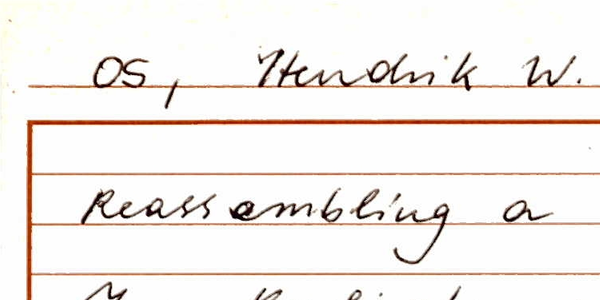 Os, Hendrik W.
Reassembling a